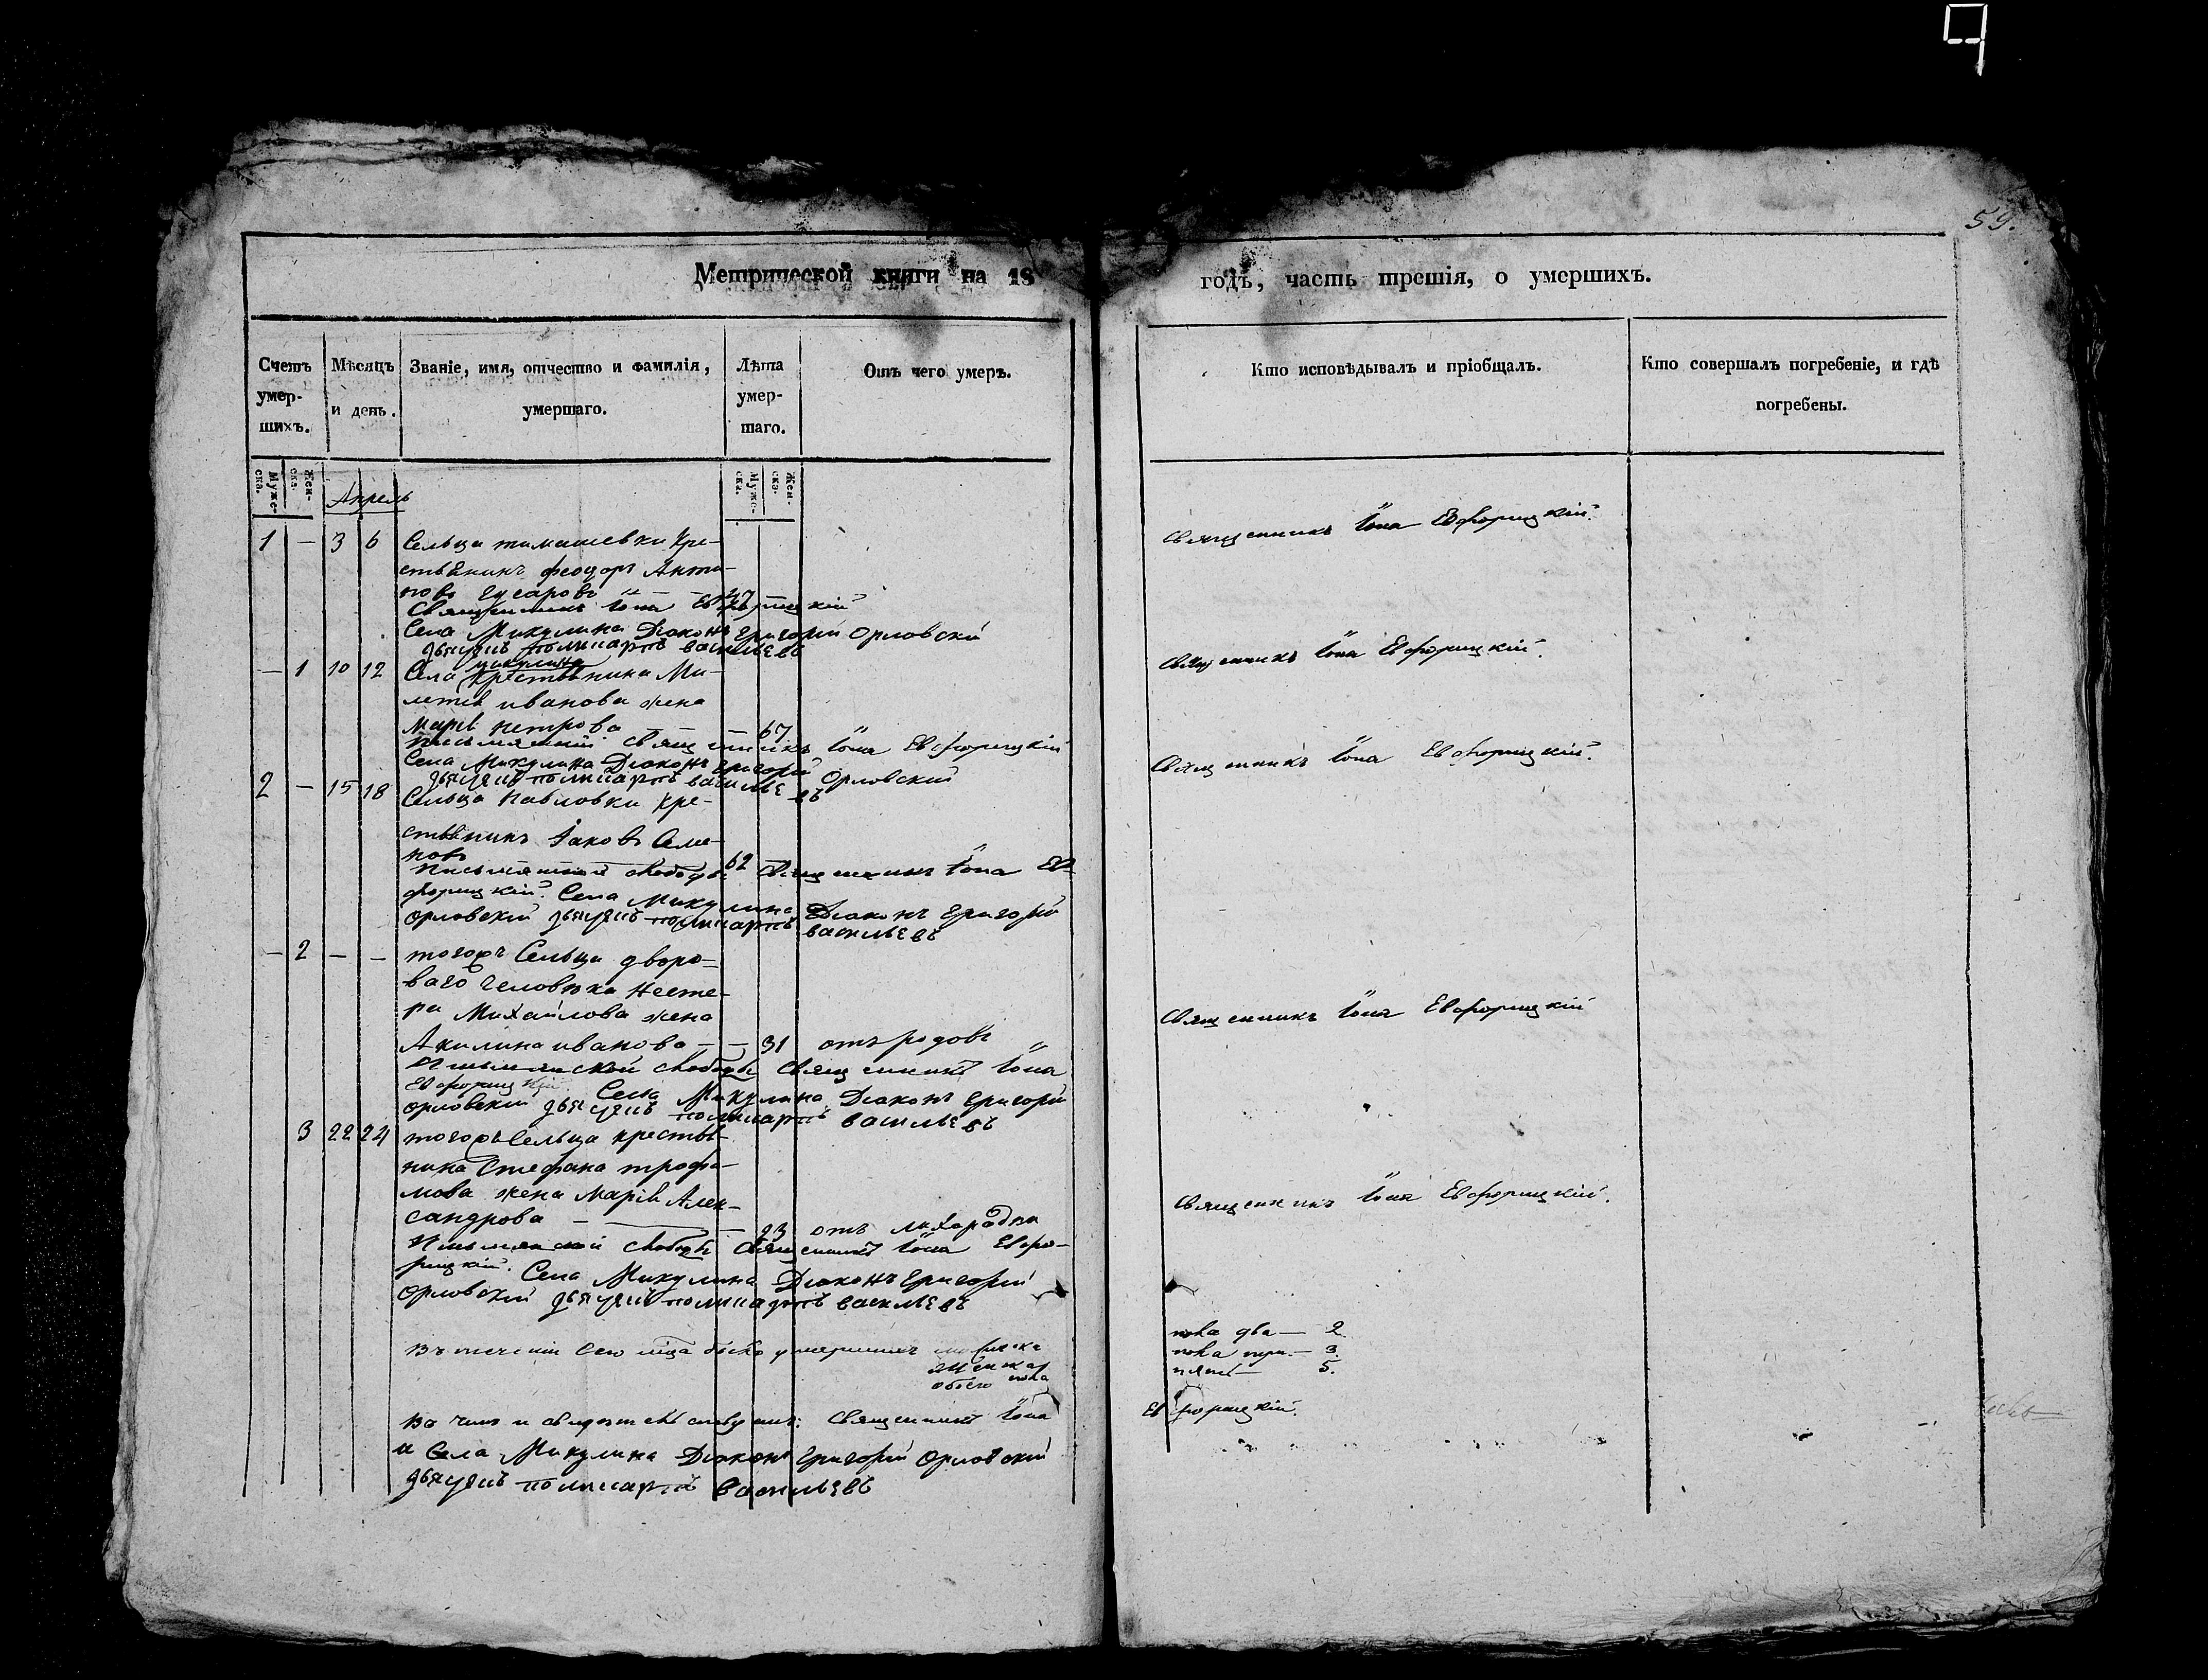 59.
Метрической книги на 18
годъ, часть третія, о умершихъ.
Счетъ умер-шихъ.
Мѣсяцъ и день.
Званіе, имя, отчество и фамилія, умершаго.
Лѣта умер-шаго.
Отъ чего умеръ.
Кто исповѣдывалъ и пріобщалъ.
Кто совершалъ погребеніе, и гдѣ погребены.
Муже-ска.
Жен-ска.
Муже-ска.
Жен-ска.
Апрель
1 — 3 6 Сельца тимашевки кре-
стьянинъ феодоръ Анти-
повъ Гусаровъ — — 47
Священникъ Іона Евфорицкій
Села Микулина Діаконъ Григорій Орловскій
дьячекъ поликарпъ васильевъ
Священникъ Іона Евфорицкій.
— 1 10 12 Села микулина крестьянина Ми-
летія иванова жена
Марія петрова — — 67
священникъ Іона Евфорицкій
Села Микулина Діаконъ Григорій Орловскій
дьячекъ поликарпъ васильевъ
Священникъ Іона Евфорицкій.
2 — 15 18 Сельца Павловки кре-
стьянинъ Іаковъ Семе-
новъ 62
Священникъ Іона Ев-
форицкій. Села Микулина Діаконъ Григорій
Орловскій дьячекъ поликарпъ васильевъ
Священникъ Іона Евфорицкій.
— 2 — — тогожъ Сельца дворо-
ваго человѣка Несте-
ра Михайлова жена
Акилина иванова — — 31 отъ родовъ
слободы Священникъ Іона
Евфорицкій. Села Микулина Діаконъ Григорій
Орловскій дьячекъ поликарпъ васильевъ
Священникъ Іона Евфорицкій
3 22 24 тогожъ Сельца крестья-
нина Стефана трофи-
мова жена Марія Алек-
сандрова — — 23 отъ лихорадки
слободы Священникъ Іона Евфо-
рицкій. Села Микулина Діаконъ Григорій
Орловскій дьячекъ поликарпъ васильевъ
Священникъ Іона Евфорицкій.
Въ теченіи сего мца было умершихъ
пола два — 2.
женска пола три — 3.
обоего пола пять — 5.
Въ чемъ и свидетельствуемъ: Священникъ Іона Евфорицкій.
и Села Микулина Діаконъ Григорій Орловскій
дьячекъ поликарпъ Васильевъ